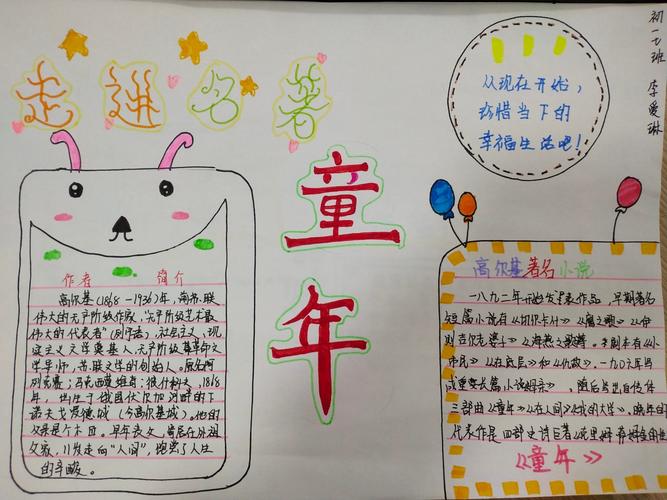 走进名著
童年
从现在开始，
珍惜当下的
幸福生活吧！
初一七班 李爱琳
作者 简介
高尔基(1868-1936)年，前苏联
伟大的无产阶级作家，"无产阶级艺术最
伟大的代表者"(列宁语)，社会主义，现
实主义文学奠基人，无产阶级革命文
学导师，苏联文学的创始人。原名阿
列克赛·马克西莫维奇·彼什科夫，1868
年，出生于俄国伏尔加河畔的下
诺夫戈罗德城(今高尔基城)。他的
父亲是个木匠。早年丧父，寄居在外祖
父家，11岁走向"人间"，饱尝了人生
的辛酸。
高尔基著名小说
一八九二年开始发表作品，早期著名
短篇小说有《切尔卡什》《鹰之歌》《伊
则吉尔老婆子》《海燕之歌》等。剧本有《小
市民》《在底层》和《仇敌》。一九〇六年写
成重要长篇小说《母亲》，随后写出自传体
三部曲《童年》《在人间》《我的大学》。晚年的
代表作是四部史诗巨著
《童年》